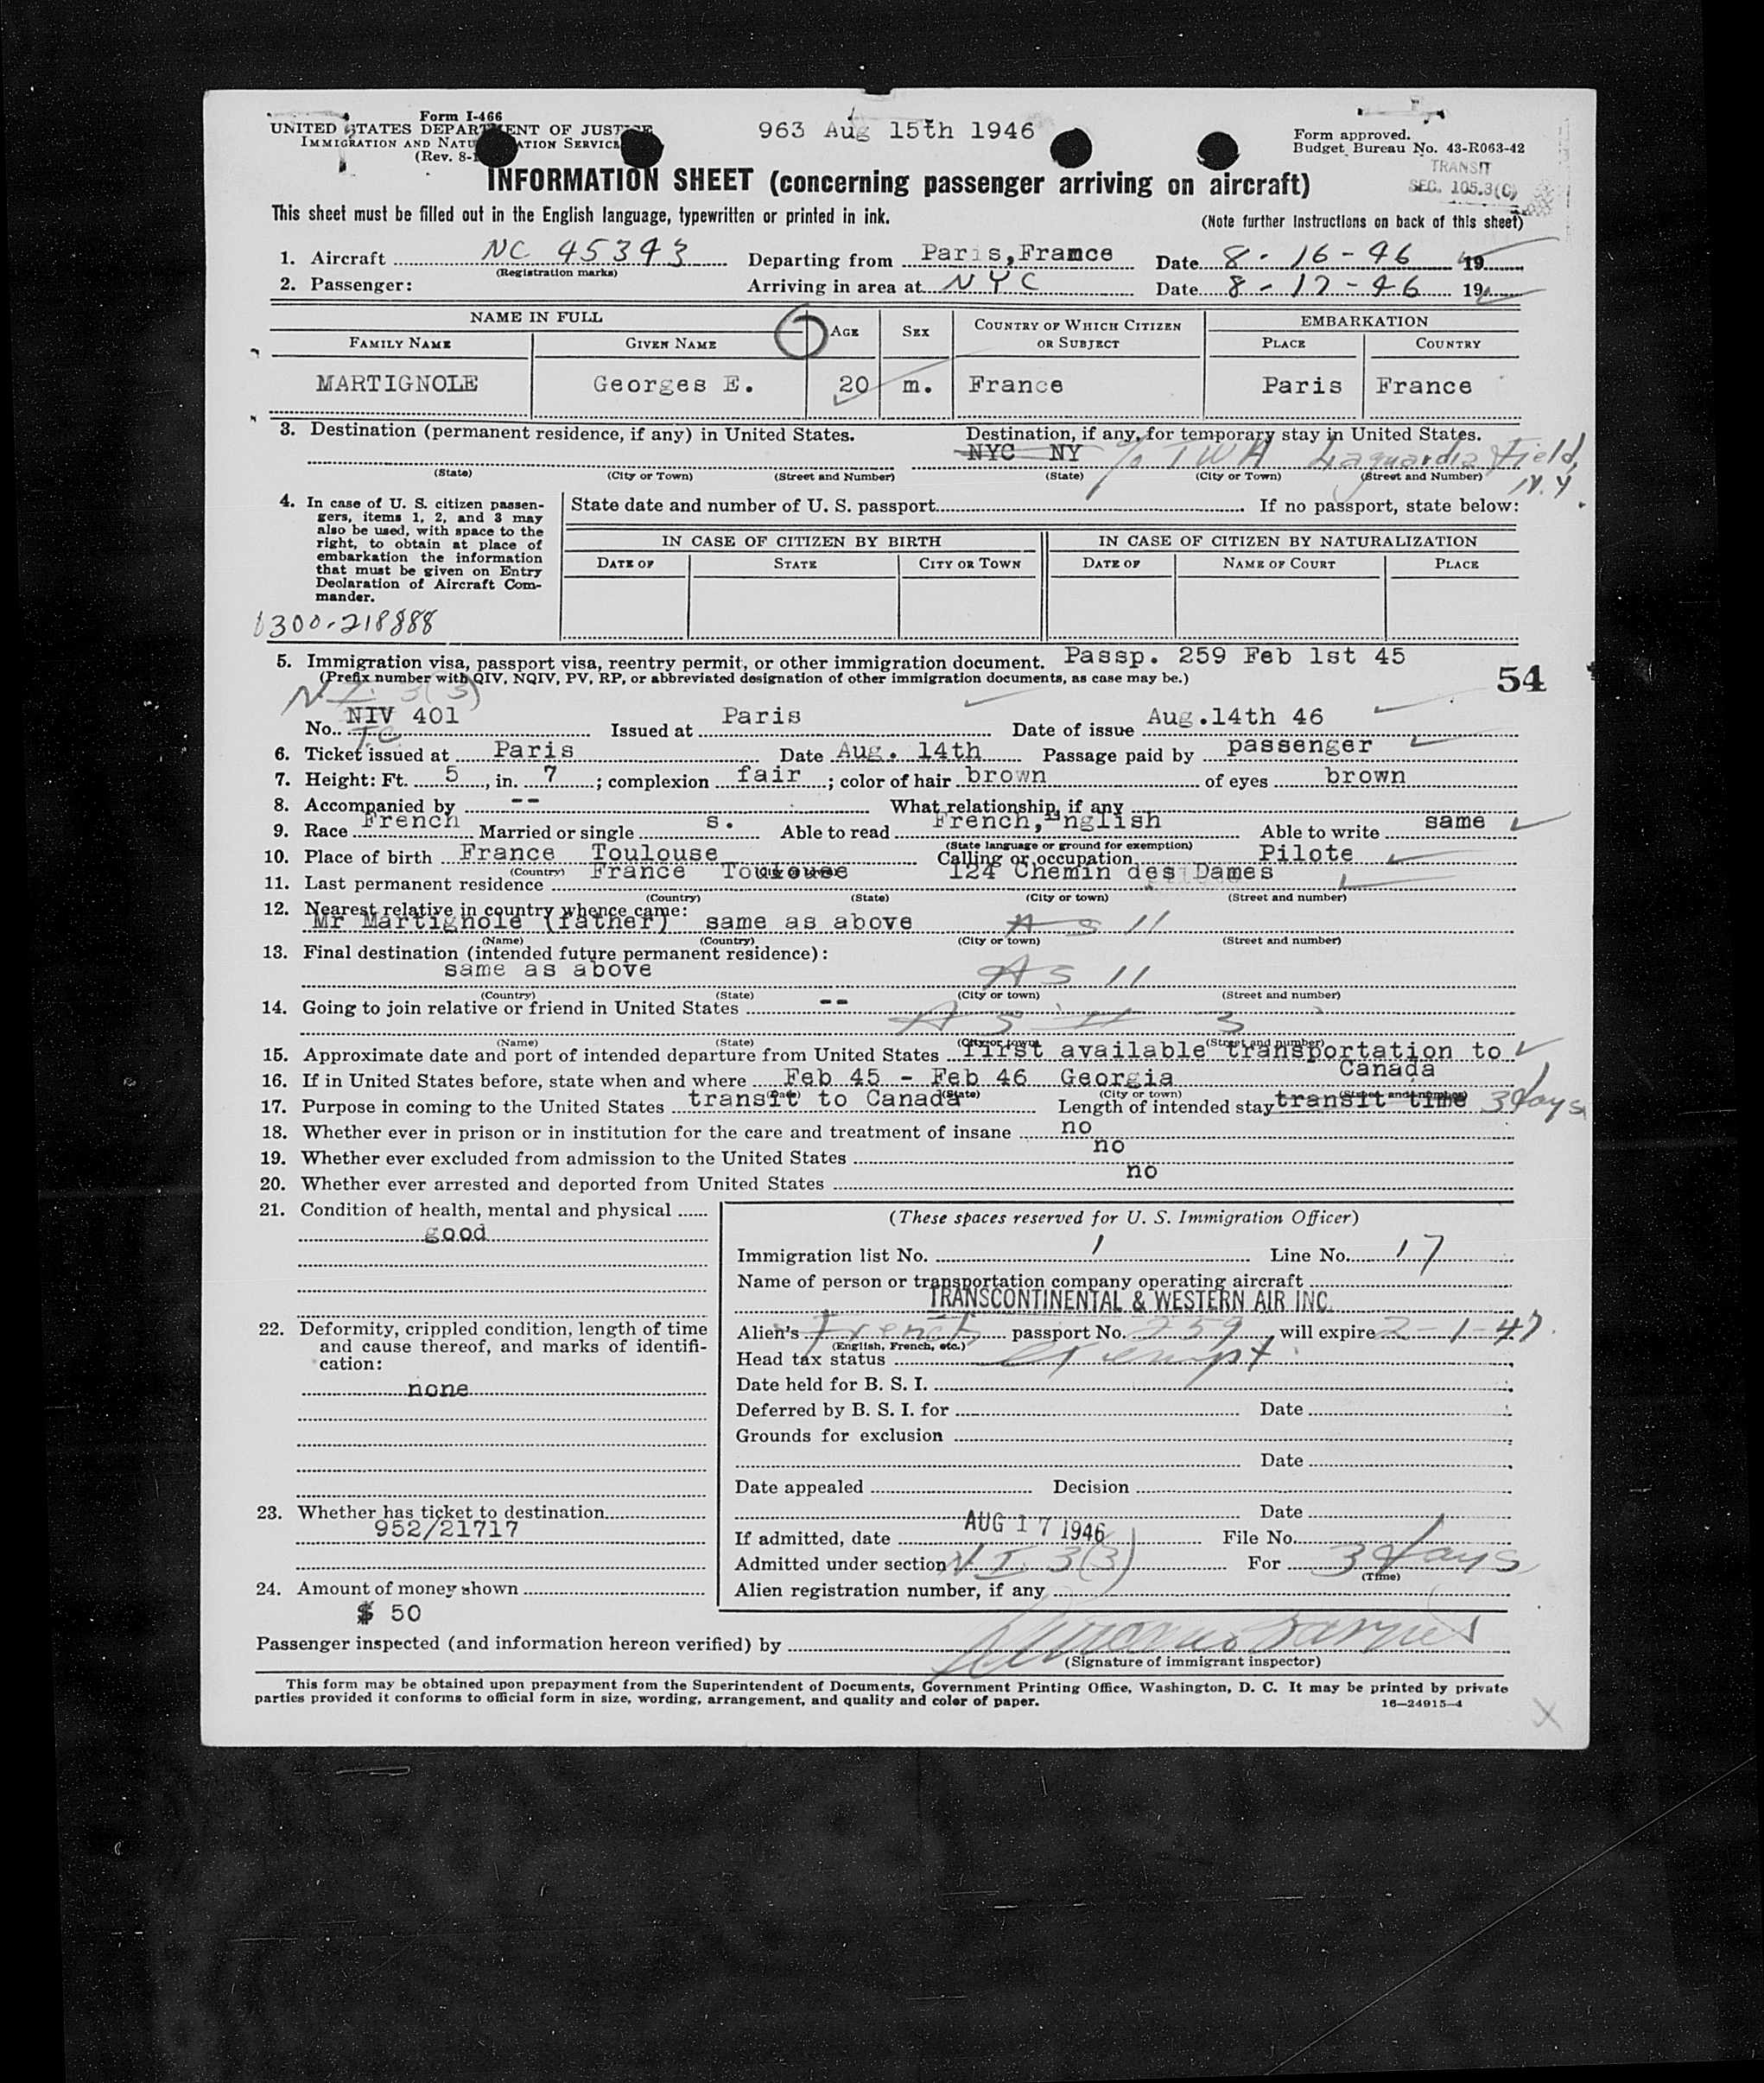 Form I-466
UNITED STATES DEPARTMENT OF JUSTICE
IMMIGRATION AND NATURALIZATION SERVICE
(Rev. 8-
963 Aug 15th 1946
Form approved.
Budget Bureau No. 43-R063-42
TRANSIT
SEC. 105.3(C)
INFORMATION SHEET (concerning passenger arriving on aircraft)
This sheet must be filled out in the English language, typewritten or printed in ink. (Note further instructions on back of this sheet)
1. Aircraft NC 45343 Departing from Paris,Framce Date 8-16-46 19
(Registration marks)
2. Passenger: Arriving in area at NYC Date 8-17-46 19
NAME IN FULL AGE SEX COUNTRY OF WHICH CITIZEN OR SUBJECT EMBARKATION
FAMILY NAME GIVEN NAME PLACE COUNTRY
MARTIGNOLE Georges E. 20 m. France Paris France
3. Destination (permanent residence, if any) in United States. Destination, if any, for temporary stay in United States.
NYC NY c/o TWA Laguardia Field, N.Y
(State) (City or Town) (Street and Number) (State) (City or Town) (Street and Number)
4. In case of U. S. citizen passengers, items 1, 2, and 3 may also be used, with space to the right, to obtain at place of embarkation the information that must be given on Entry Declaration of Aircraft Commander.
State date and number of U. S. passport If no passport, state below:
IN CASE OF CITIZEN BY BIRTH IN CASE OF CITIZEN BY NATURALIZATION
DATE OF STATE CITY OR TOWN DATE OF NAME OF COURT PLACE
0300-218888
5. Immigration visa, passport visa, reentry permit, or other immigration document. Passp. 259 Feb 1st 45
(Prefix number with QIV, NQIV, PV, RP, or abbreviated designation of other immigration documents, as case may be.)
54
N I 3(3)
No. NIV 401 Issued at Paris Date of issue Aug.14th 46
T.C
6. Ticket issued at Paris Date Aug. 14th Passage paid by passenger
7. Height: Ft. 5, in. 7; complexion fair; color of hair brown of eyes brown
8. Accompanied by -- What relationship, if any
9. Race French Married or single s. Able to read French,English Able to write same
(State language or ground for exemption)
10. Place of birth France Toulouse Calling or occupation Pilote
(Country)
11. Last permanent residence France Toulouse 124 Chemin des Dames
(Country) (State) (City or town) (Street and number)
12. Nearest relative in country whence came:
Mr Martignole (father) same as above As 11
(Name) (Country) (City or town) (Street and number)
13. Final destination (intended future permanent residence):
same as above As 11
(Country) (State) (City or town) (Street and number)
14. Going to join relative or friend in United States --
As 3
(Name) (State) (City or town) (Street and number)
15. Approximate date and port of intended departure from United States first available transportation to
Canada
16. If in United States before, state when and where Feb 45 - Feb 46 Georgia
(Date) (State) (City or town) (Street and number)
17. Purpose in coming to the United States transit to Canada Length of intended stay transit time 3 days
18. Whether ever in prison or in institution for the care and treatment of insane no
19. Whether ever excluded from admission to the United States no
20. Whether ever arrested and deported from United States no
21. Condition of health, mental and physical
good
22. Deformity, crippled condition, length of time and cause thereof, and marks of identification:
none
23. Whether has ticket to destination
952/21717
24. Amount of money shown
$ 50
(These spaces reserved for U. S. Immigration Officer)
Immigration list No. 1 Line No. 17
Name of person or transportation company operating aircraft
TRANSCONTINENTAL & WESTERN AIR INC.
Alien's French passport No. 259, will expire 2-1-47
(English, French, etc.)
Head tax status exempt
Date held for B. S. I.
Deferred by B. S. I. for Date
Grounds for exclusion
Date
Date appealed Decision
Date
If admitted, date AUG 17 1946 File No.
Admitted under section N.I. 3(3) For 3 days
(Time)
Alien registration number, if any
Passenger inspected (and information hereon verified) by
(Signature of immigrant inspector)
This form may be obtained upon prepayment from the Superintendent of Documents, Government Printing Office, Washington, D. C. It may be printed by private
parties provided it conforms to official form in size, wording, arrangement, and quality and color of paper. 16—24915-4
X